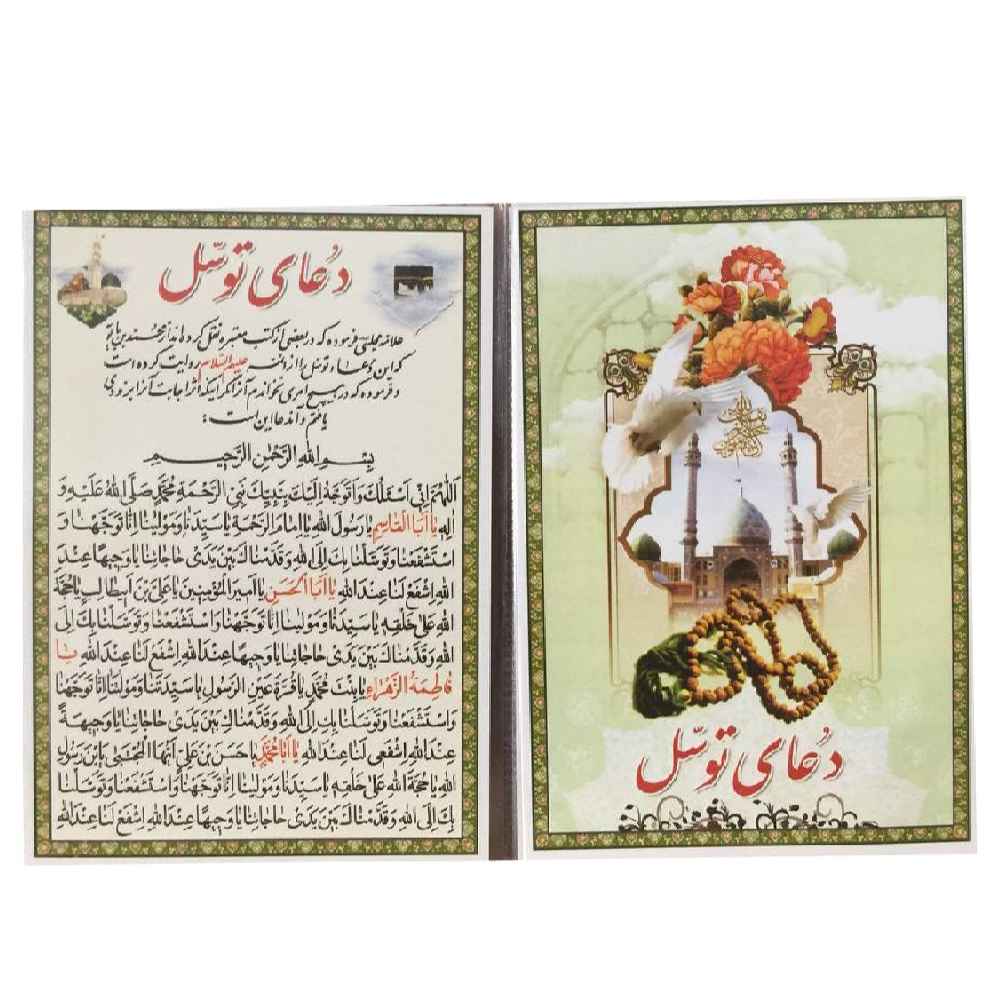 دعای توسّل
علامه مجلسی فرموده که در بعضی از کتب معتبره نقل کرده‌اند از محمد بن بابویه
که این دعاء توسل را از ائمه علیهم السلام روایت کرده است
و فرموده که در هیچ امری نخواندم آنرا مگر اینکه اثر اجابت آنرا بزودی
یافتم و آن دعا این است:
بِسْمِ اللهِ الرَّحْمٰنِ الرَّحيمِ
اَللّٰهُمَّ اِنّي اَسْئَلُكَ وَاَتَوَجَّهُ اِلَيْكَ بِنَبِيِّكَ نَبِيِّ الرَّحْمَةِ مُحَمَّدٍ صَلَّى اللهُ عَلَيْهِ وَ
الِهِ يٰا اَبَا الْقٰاسِمِ يٰا رَسُولَ اللهِ يٰا اِمٰامَ الرَّحْمَةِ يٰا سَيِّدَنٰا وَمَوْلٰينٰا اِنّٰا تَوَجَّهْنٰا وَ
اسْتَشْفَعْنٰا وَتَوَسَّلْنٰا بِكَ اِلَى اللهِ وَقَدَّمْنٰاكَ بَيْنَ يَدَىْ حٰاجٰاتِنٰا يٰا وَجيهًا عِنْدَ
اللهِ اِشْفَعْ لَنٰا عِنْدَ اللهِ يٰا اَبَا الْحَسَنِ يٰا اَميرَ الْمُؤْمِنينَ يٰا عَلِىَّ بْنَ اَبيطٰالِبٍ يٰا حُجَّةَ
اللهِ عَلىٰ خَلْقِهِ يٰا سَيِّدَنٰا وَمَوْلٰينٰا اِنّٰا تَوَجَّهْنٰا وَاسْتَشْفَعْنٰا وَتَوَسَّلْنٰا بِكَ اِلَى
اللهِ وَقَدَّمْنٰاكَ بَيْنَ يَدَىْ حٰاجٰاتِنٰا يٰا وَجيهًا عِنْدَ اللهِ اِشْفَعْ لَنٰا عِنْدَ اللهِ يٰا
فٰاطِمَةُ الزَّهْرٰاءِ يٰا بِنْتَ مُحَمَّدٍ يٰا قُرَّةَ عَيْنِ الرَّسُولِ يٰا سَيِّدَتَنٰا وَمَوْلٰاتَنٰا اِنّٰا تَوَجَّهْنٰا
وَاسْتَشْفَعْنٰا وَتَوَسَّلْنٰا بِكِ اِلَى اللهِ وَقَدَّمْنٰاكِ بَيْنَ يَدَىْ حٰاجٰاتِنٰا يٰا وَجيهَةً
عِنْدَ اللهِ اِشْفَعى لَنٰا عِنْدَ اللهِ يٰا اَبٰا مُحَمَّدٍ يٰا حَسَنَ بْنَ عَلِىٍّ اَيُّهَا الْمُجْتَبىٰ يَابْنَ رَسُولِ
اللهِ يٰا حُجَّةَ اللهِ عَلىٰ خَلْقِهِ يٰا سَيِّدَنٰا وَمَوْلٰينٰا اِنّٰا تَوَجَّهْنٰا وَاسْتَشْفَعْنٰا وَتَوَسَّلْنٰا
بِكَ اِلَى اللهِ وَقَدَّمْنٰاكَ بَيْنَ يَدَىْ حٰاجٰاتِنٰا يٰا وَجيهًا عِنْدَ اللهِ اِشْفَعْ لَنٰا عِنْدَ اللهِ
دعای توسّل